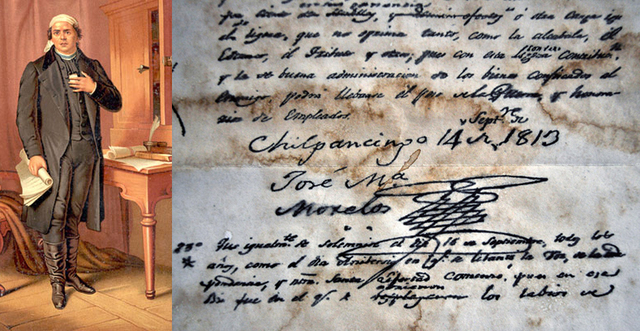 por ciento de Semillas, y demas efectos ó otra carga igual
de ligera, que no oprima tanto, como la alcabala, el
Estanco, el Tributo y otros, pues con esta ligera Contribucn.
y la buena administracion de los bienes confiscados al
enemigo podra llebarse el peso de la Guerra, y honora
rios de Empleados.
Chilpancingo 14 de Septre. de 1813
José Ma.
Morelos
23º Que igualmte. se solemnize el dia 16 de Septiembre, todos los
años, como el dia Anibersario en q. se lebanto la Voz, de la Inde
pendencia, y ntra. Santa Libertad comenzo, pues en ese
Dia fue en el q. se desplegaron los labios de